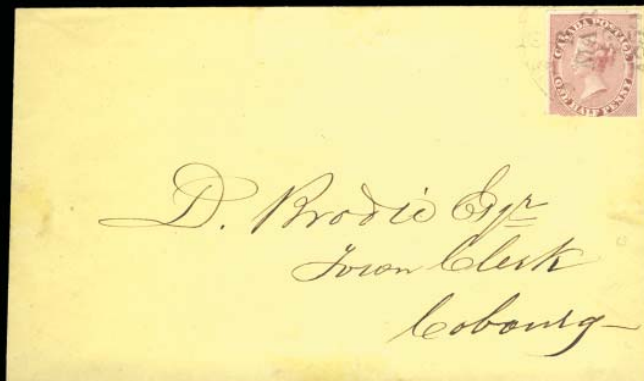 CANADA POSTAGE
MA
ONE HALF PENNY
D. Brodie Esqr
Town Clerk
Cobourg